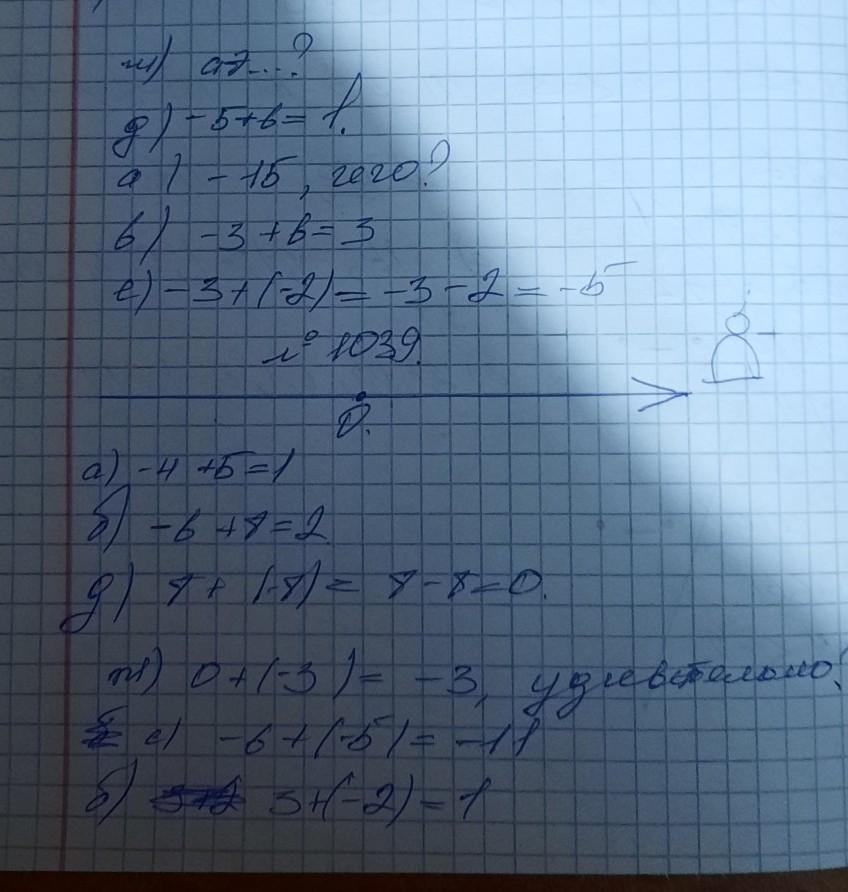 ж) аэ...?
д) -5+6=1.
а) -15, чего?
в) -3+6=3
е) -3+(-2)=-3-2=-5
№ 1039.
0.
а) -4+5=1
б) -6+8=2
д) 8+(-8)=8-8=0.
ж) 0+(-3)=-3, удивительно!
е) -6+(-5)=-11
б) 3+(-2)=1